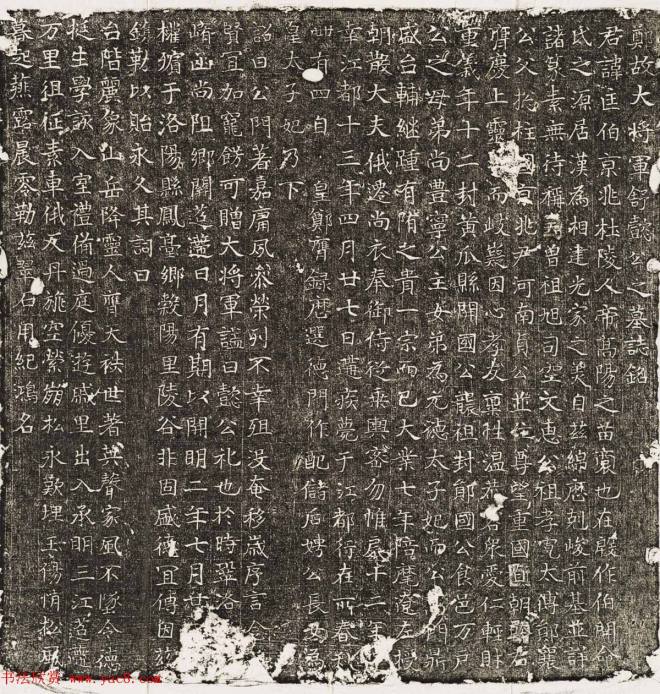 鄭故大將軍舒懿公之墓誌銘
君諱匡伯京兆杜陵人帝高陽之苗裔也在殷作伯開命
氏之源居漢為相建光家之美自茲綿歷刻峻前基並詳
諸篆素無待稱言曾祖旭司空文惠公祖孝寬太傅鄖襄
公父抗柱國京兆尹河南貞公並位尊望重國直朝
膺慶上靈而岐嶷因心孝友稟性溫恭眾愛仁輕財
重義年十二封黃瓜縣開國公襲祖封鄖國公食邑万戶
公之母弟尚豊寧公主女弟為元德太子妃而公門鼎
盛台輔繼踵有隋之貴一宗而已大業七年陪麾遼左授
朝散大夫俄遷尚衣奉御侍從乘輿密勿惟扆十二年
幸江都十三年四月廿七日遘疾薨于江都行在所春秋
卌有四自 皇鄭膺錄唐選德門作配儲后娉公長女為
皇太子妃乃下
詔曰公門著嘉庸夙參榮列不幸殂沒奄移歲序言念
賢宜加寵飾可贈大將軍諡曰懿公礼也於時鞏洛
崤函尚阻鄉關遼遠日月有期以開明二年七月廿
權殯于洛陽縣鳳臺鄉穀陽里陵谷非固盛德宜傳因茲
鐫勒以貽永久其詞曰
台階麗象山岳降靈人膺大秩世著英聲家風不墜令德
挺生學詠入室禮備過庭優遊戚里出入承明三江
万里徂征素車俄反丹旐空縈崩松永歎埋玉傷情松
暮起薤露晨零勒茲翠石用紀鴻名
书法欣赏 www.yac8.com